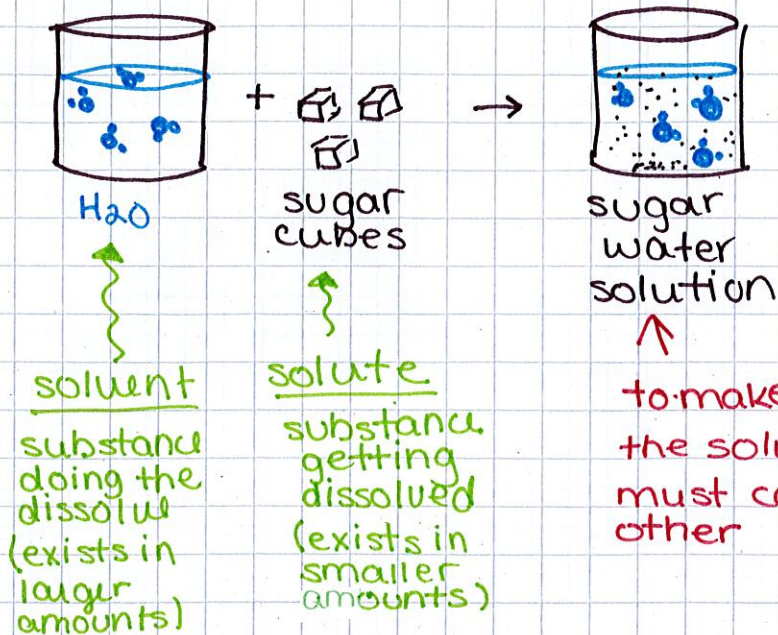 +
→
H2O
sugar
cubes
sugar
water
solution
solvent
substance
doing the
dissolve
(exists in
larger
amounts)
solute
substance
getting
dissolved
(exists in
smaller
amounts)
to make
the solu
must co
other